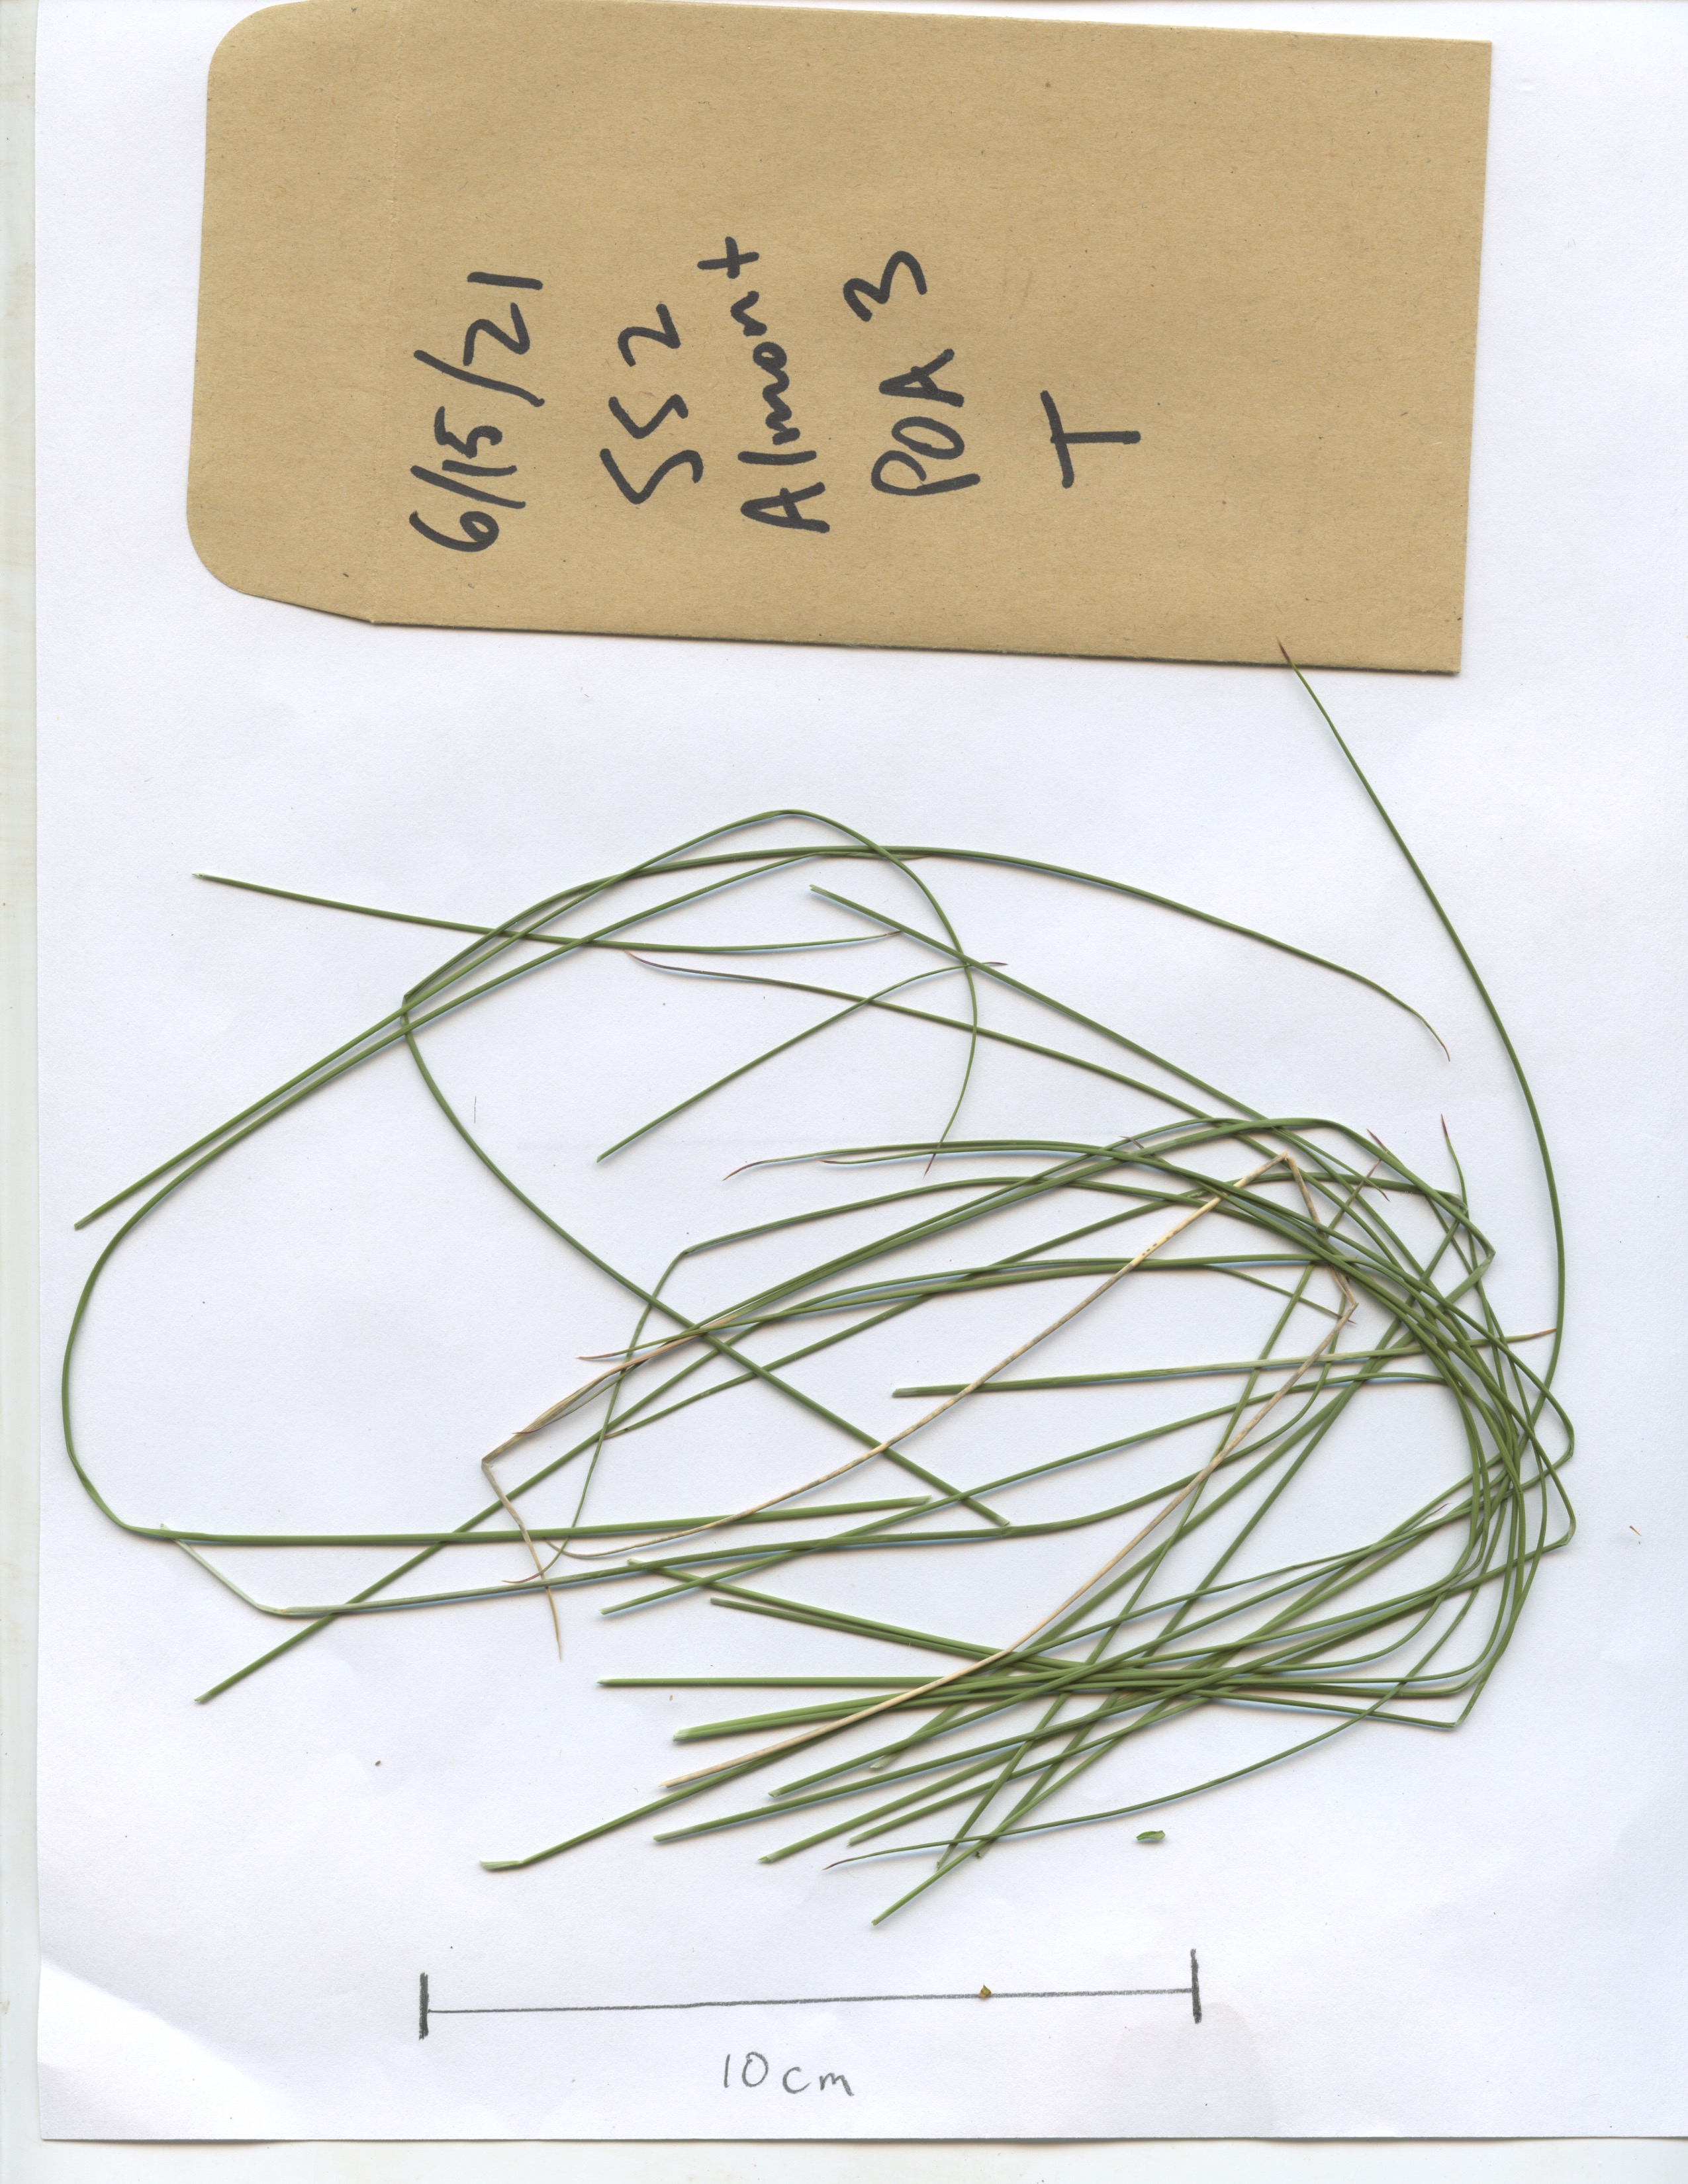 6/15/21
SS 2
Almont
POA 3
T
10 cm